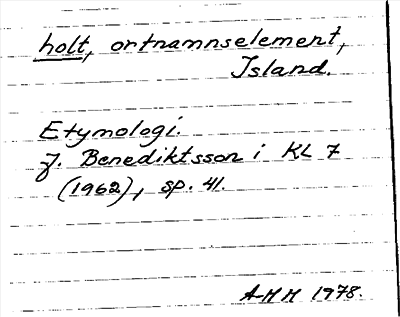 holt, ortnamnselement,
Island.
Etymologi.
J. Benediktsson i KL 7
(1962), sp. 41.
A-M H 1978.